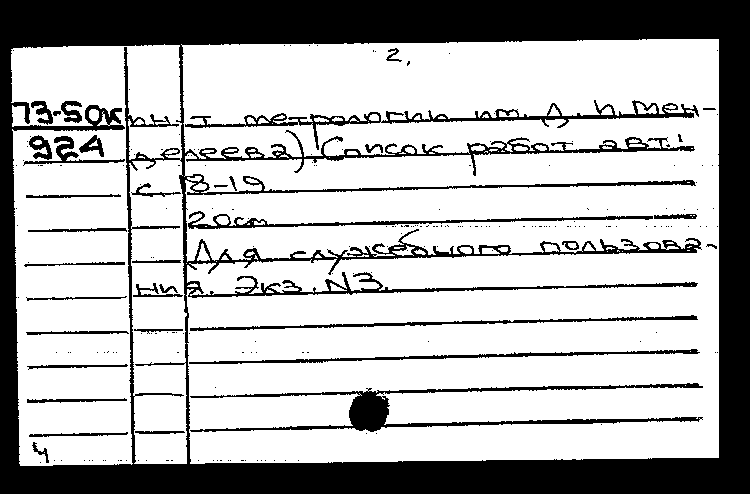 2.
73-50к ин. т метрологии им. Д. И. Мен-
924 делеева). Список работ авт.:
с. 18-19
20см
Для служебного пользова-
ния. Экз. №3.
4